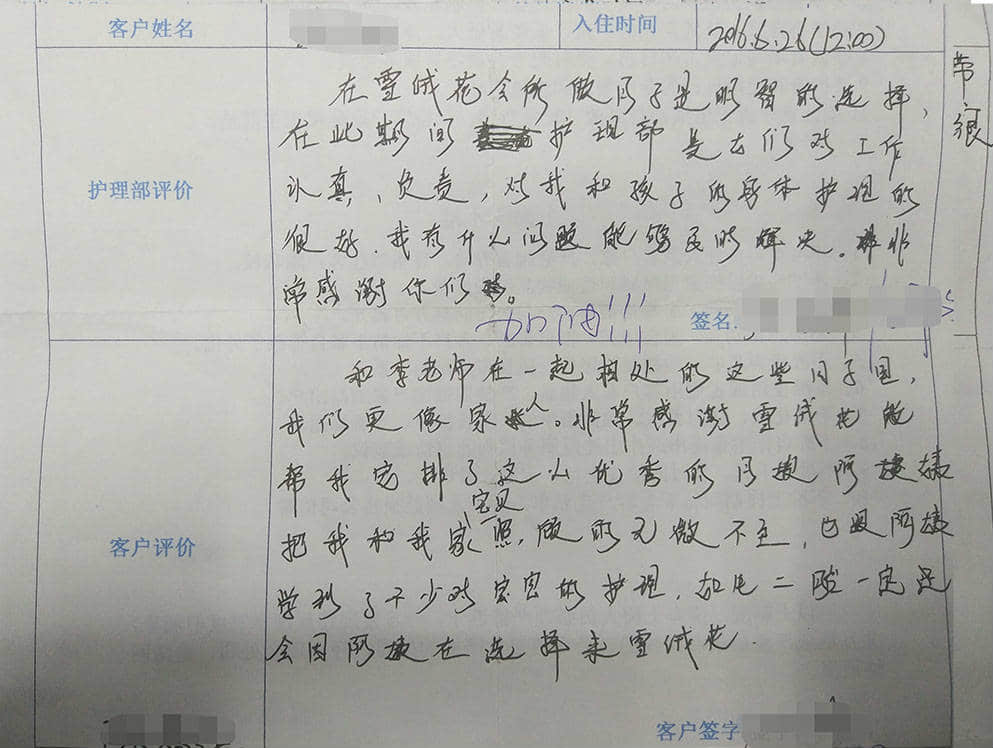 客户姓名
入住时间
2016.6.26(12:00)
护理部评价
在雪绒花会所做月子是明智的选择,
在此期间 护理部 们对工作
认真、负责,对我和孩子的身体护理的
很好.我有什么问题能够及时解决。非
常感谢你们。
加油!!!
签名:
客户评价
和李老师在一起相处的这些日子里,
我们更像家人。非常感谢雪绒花能
帮我安排了这么优秀的月嫂阿姨
把我和我家宝贝照顾的无微不至, 阿姨
学到了不少对宝宝的护理.如 二胎一定还
会因阿姨在选择来雪绒花.
客户签字
常
很